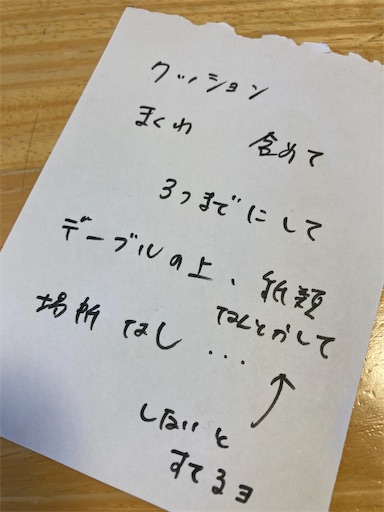 クッション
まくわ 含めて
3つまでにして
テーブルの上、紙類
なんとかして
場所 なし ...
しないと
すてるヨ